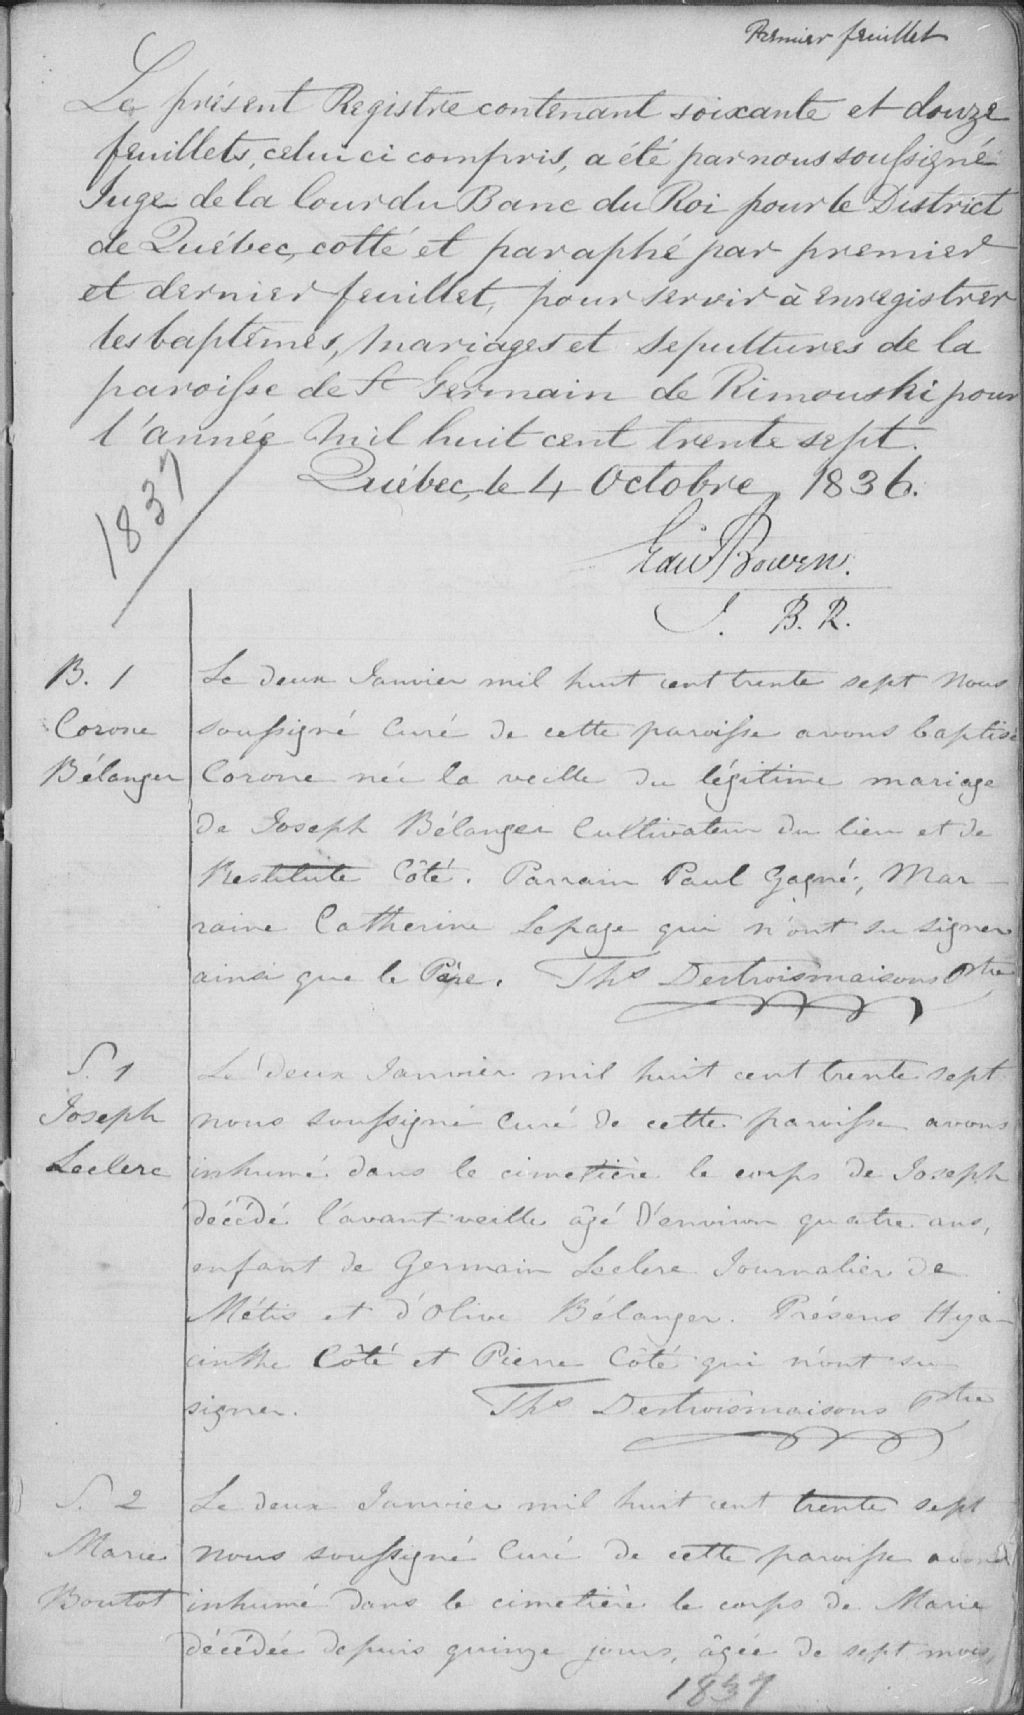 Premier feuillet
Le présent Registre contenant soixante et douze
feuillets, celui ci compris, a été par nous soussigné
Juge de la Cour du Banc du Roi pour le District
de Québec, cotté et paraphé par premier
et dernier feuillet, pour servir à enregistrer
les baptêmes, mariages et sepultures de la
paroisse de St Germain de Rimouski pour
l'année mil huit cent trente sept.
1837
Québec, le 4 Octobre, 1836.
Edw Bowen.
J. B. R.
B. 1
Corone
Bélanger
Le deux Janvier mil huit cent trente sept Nous
soussigné Curé de cette paroisse avons baptisé
Corone née la veille du légitime mariage
de Joseph Bélanger Cultivateur du lieu et de
Restitute Côté. Parrain Paul Gagné, Mar-
raine Catherine Lepage qui n'ont su signer
ainsi que le Père. Ths Destroismaisons Ptre
S. 1
Joseph
Leclerc
Le deux Janvier mil huit cent trente sept
nous soussigné curé de cette paroisse avons
inhumé dans le cimetière le corps de Joseph
décédé l'avant veille âgé d'environ quatre ans,
enfant de Germain Leclerc Journalier de
Métis et d'Olive Bélanger. Présens Hya-
cinthe Côté et Pierre Côté qui n'ont su
signer. Ths Destroismaisons Ptre
S. 2
Marie
Boutot
Le deux Janvier mil huit cent trente sept
nous soussigné Curé de cette paroisse avons
inhumé dans le cimetière le corps de Marie
décédée depuis quinze jours, âgée de sept mois,
1837